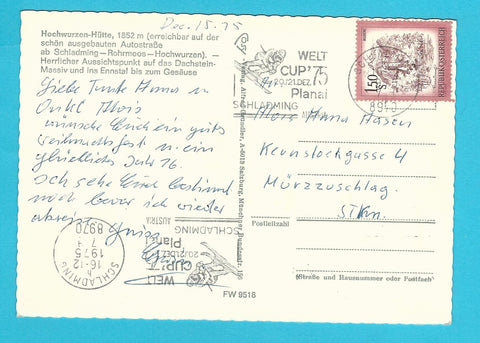 Hochwurzen-Hütte, 1852 m (erreichbar auf der
schön ausgebauten Autostraße
ab Schladming–Rohrmoos–Hochwurzen). –
Herrlicher Aussichtspunkt auf das Dachstein-
Massiv und ins Ennstal bis zum Gesäuse
Dec. 15. 75
Liebe Tante Hanna u
Onkel Alois
wünsche Euch ein gutes
Weihnachtsfest u. ein
glückliches Jahr 76.
Ich sehe Euch bestimmt
noch bevor ich wieder
abreise
WELT
CUP'75
20./21. DEZ.
Planai
SCHLADMING
AUSTRIA
1.50
S
REPUBLIK ÖSTERREICH
8970
Alois Hanna
Kernstockgasse 4
Mürzzuschlag.
Stkm.
Postleitzahl
(Straße und Hausnummer oder Postfach)
FW 9518
WELT
CUP'75
20./21. DEZ.
Planai
SCHLADMING
AUSTRIA
SCHLADMING
16-12
h
1975
8970